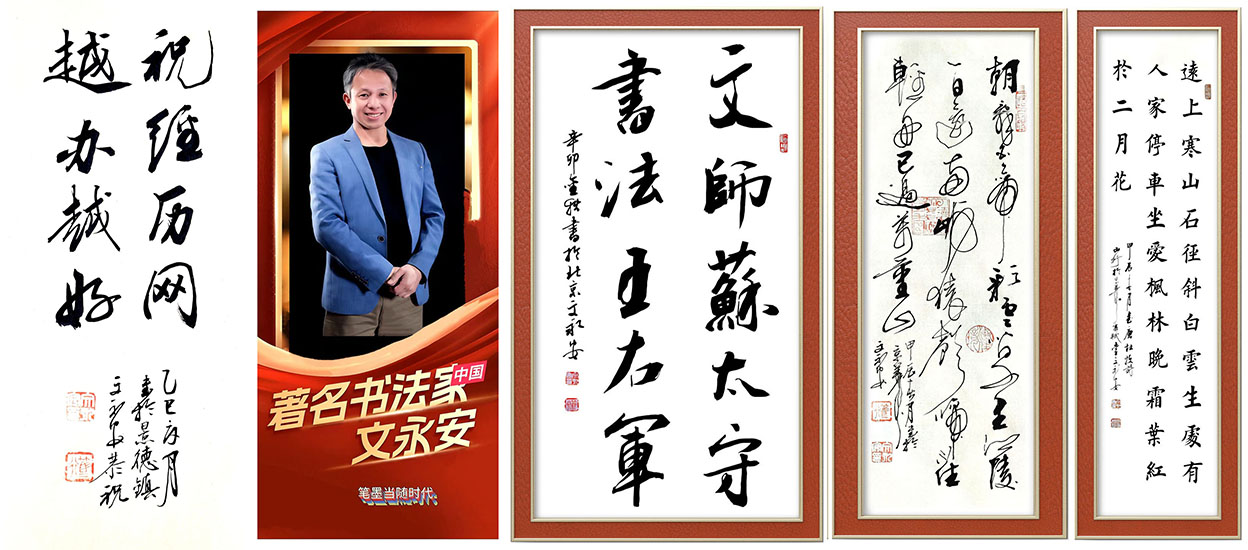 祝经历网
越办越好
乙巳年月
书于景德镇
文永安恭祝
中国
著名书法家
文永安
笔墨当随时代
文師蘇太守
書法王右軍
辛卯書於北京文永安
朝辞白帝彩雲间千里江陵
一日還两岸猿聲啼不住
輕舟已過萬重山
文永安
遠上寒山石徑斜白雲生處有
人家停車坐愛楓林晚霜葉紅
於二月花
甲辰月書唐杜牧詩
山行於文永安